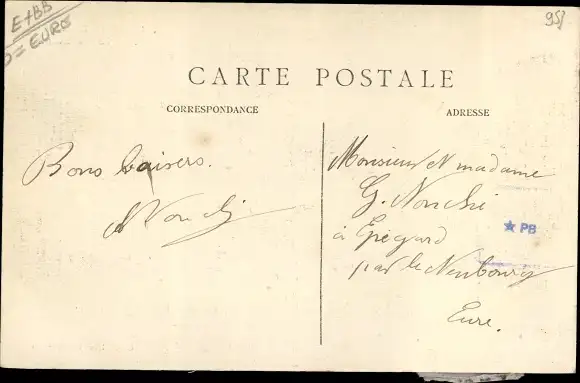 E+BB
= EURE
95
CARTE POSTALE
CORRESPONDANCE
ADRESSE
Bons baisers.
Monsieur et madame
G.
à Epégard
par le Neubourg
Eure.
★ PB